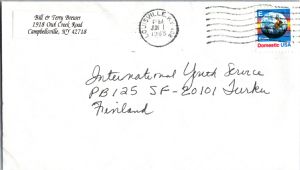 Bill & Terry Breuer
1918 Owl Creek Road
Campbellsville, KY 42718
LOUISVILLE, KY
PM
JUN 1
1988
E
Earth
Domestic USA
International Youth Service
PB 125 SF-20101 Turku
Finland